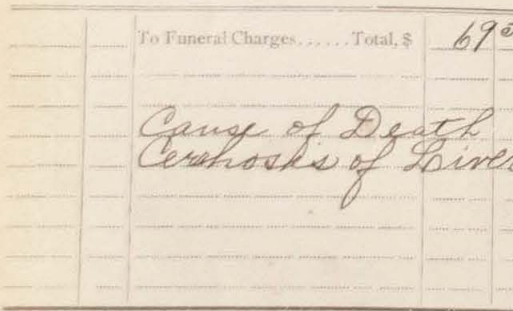 To Funeral Charges......Total, $ 69
Cause of Death
Cerrhosis of Liver